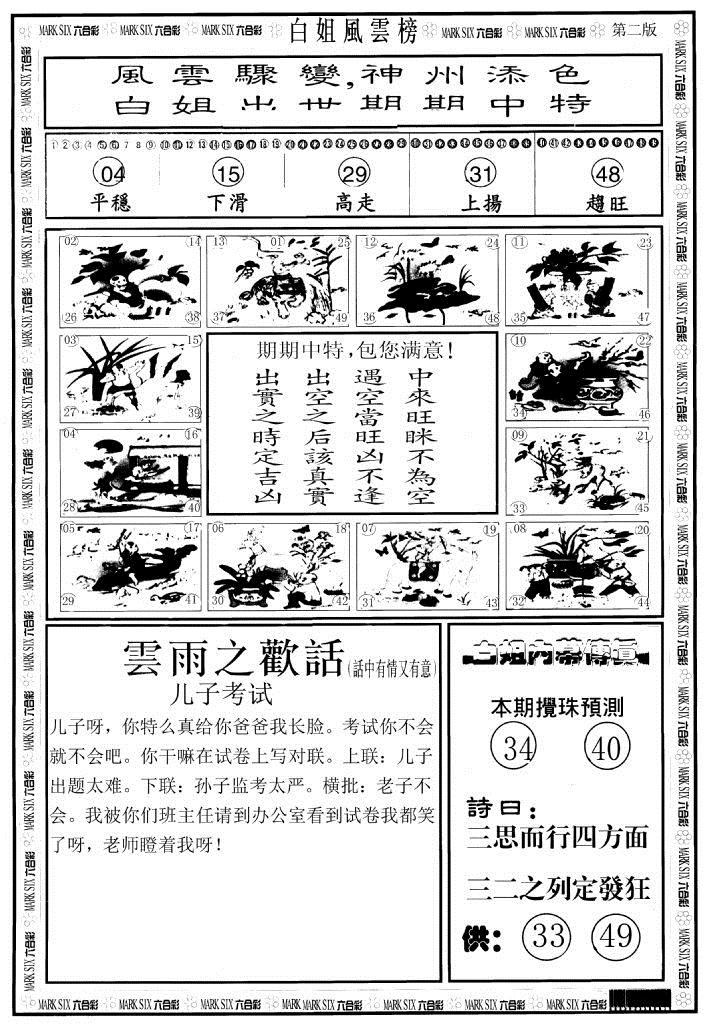 MARK SIX 六合彩 MARK SIX 六合彩 MARK SIX 六合彩 白姐風雲榜 MARK SIX 六合彩 MARK SIX 六合彩 第二版
風雲驟變,神州添色
白姐出世期期中特
04 15 29 31 48
平穩 下滑 高走 上揚 趨旺
02 14 26 38
13 01 25 37 49
12 24 36 48
11 23 35 47
03 15 27 39
10 22 34 46
04 16 28 40
09 21 33 45
05 17 29 41
06 18 30 42
07 19 31 43
08 20 32 44
期期中特,包您满意!
中來旺眯不為空
遇空當旺凶不逢
出空之后該真實
出實之時定吉凶
雲雨之歡話(話中有情又有意)
儿子考试
儿子呀，你特么真给你爸爸我长脸。考试你不会
就不会吧。你干嘛在试卷上写对联。上联：儿子
出题太难。下联：孙子监考太严。横批：老子不
会。我被你们班主任请到办公室看到试卷我都笑
了呀，老师瞪着我呀！
白姐内幕傳真
本期攪珠預測
34 40
詩曰：
三思而行四方面
三二之列定發狂
供：33 49
MARK SIX 六合彩 MARK SIX 六合彩 MARK SIX 六合彩 MARK SIX 六合彩 MARK SIX 六合彩 MARK SIX 六合彩 MARK SIX 六合彩